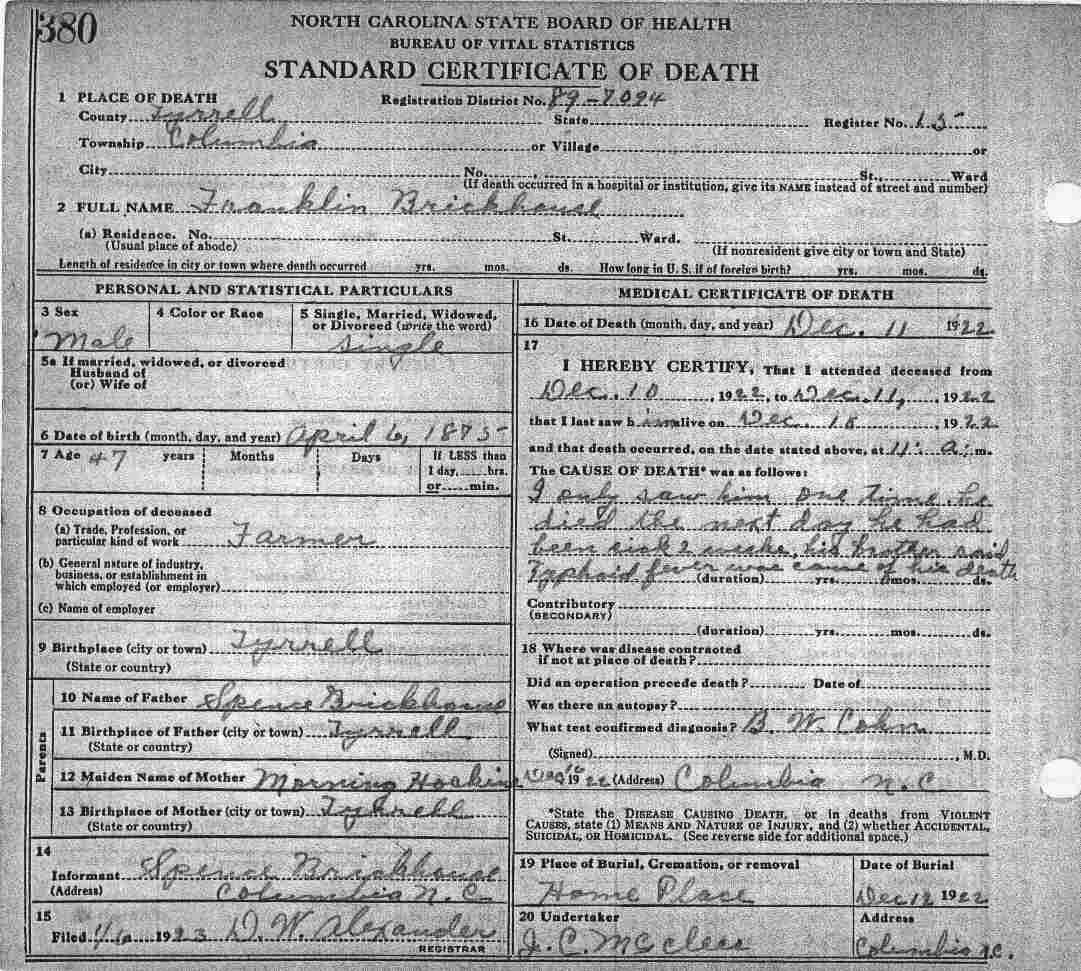 380
NORTH CAROLINA STATE BOARD OF HEALTH
BUREAU OF VITAL STATISTICS
STANDARD CERTIFICATE OF DEATH
1 PLACE OF DEATH Registration District No. 89-7094
County Tyrrell State Register No. 15
Township Columbia or Village or
City No. , St., Ward
(If death occurred in a hospital or institution, give its NAME instead of street and number)
2 FULL NAME Franklin Brickhouse
(a) Residence. No. St. Ward.
(Usual place of abode) (If nonresident give city or town and State)
Length of residence in city or town where death occurred yrs. mos. ds. How long in U. S. if of foreign birth? yrs. mos. ds.
PERSONAL AND STATISTICAL PARTICULARS
3 Sex 4 Color or Race 5 Single, Married, Widowed, or Divorced (write the word)
Male single
5a If married, widowed, or divorced
Husband of
(or) Wife of
6 Date of birth (month, day, and year) April 6, 1875
7 Age 47 years Months Days If LESS than
1 day, hrs.
or min.
8 Occupation of deceased
(a) Trade, Profession, or
particular kind of work Farmer
(b) General nature of industry,
business, or establishment in
which employed (or employer)
(c) Name of employer
9 Birthplace (city or town) Tyrrell
(State or country)
Parents
10 Name of Father Spence Brickhouse
11 Birthplace of Father (city or town) Tyrrell
(State or country)
12 Maiden Name of Mother Morning Hoskins
13 Birthplace of Mother (city or town) Tyrrell
(State or country)
14
Informant Spence Brickhouse
(Address) Columbia N. C.
15
Filed 1/6 1923 D. W. Alexander
REGISTRAR
MEDICAL CERTIFICATE OF DEATH
16 Date of Death (month, day, and year) Dec. 11 1922
17
I HEREBY CERTIFY, That I attended deceased from
Dec. 10, 1922, to Dec. 11, 1922
that I last saw him alive on Dec. 10, 1922
and that death occurred, on the date stated above, at 11: a. m.
The CAUSE OF DEATH* was as follows:
I only saw him one time he
died the next day he had
been sick 2 weeks, his brother said
Typhoid fever was cause of his death
(duration) yrs. mos. ds.
Contributory
(SECONDARY)
(duration) yrs. mos. ds.
18 Where was disease contracted
if not at place of death?
Did an operation precede death? Date of
Was there an autopsy?
What test confirmed diagnosis? B. W. Cohn
(Signed) , M.D.
Dec 16 1922 (Address) Columbia N. C.
*State the DISEASE CAUSING DEATH, or in deaths from VIOLENT
CAUSES, state (1) MEANS AND NATURE OF INJURY, and (2) whether ACCIDENTAL,
SUICIDAL, OR HOMICIDAL. (See reverse side for additional space.)
19 Place of Burial, Cremation, or removal Date of Burial
Home Place Dec 12 1922
20 Undertaker Address
J. C. McClees Columbia N.C.